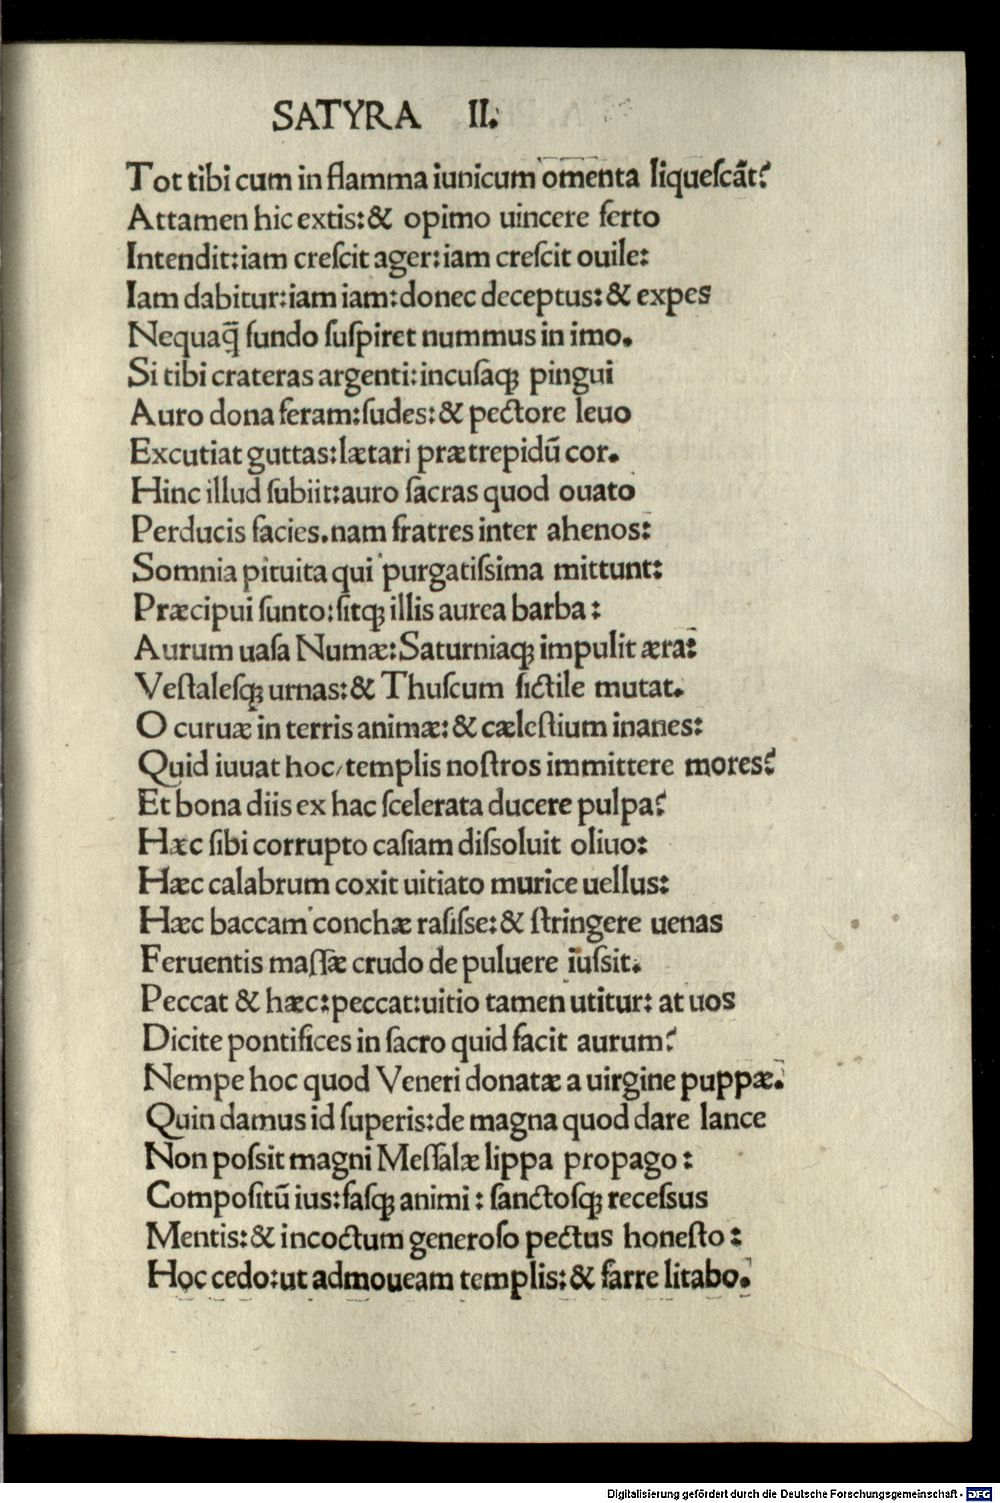 SATYRA II.
Tot tibi cum in flamma iunicum omenta liqueſcāt?
Attamen hic extis:& opimo uincere ferto
Intendit:iam creſcit ager:iam creſcit ouile:
Iam dabitur:iam iam:donec deceptus:& expes
Nequaq̃ fundo ſuſpiret nummus in imo.
Si tibi crateras argenti:incuſaqꝫ pingui
Auro dona feram:ſudes:& pectore leuo
Excutiat guttas:lætari prætrepidū cor.
Hinc illud ſubiit:auro ſacras quod ouato
Perducis facies.nam fratres inter ahenos:
Somnia pituita qui purgatiſsima mittunt:
Præcipui ſunto:ſitqꝫ illis aurea barba:
Aurum uaſa Numæ:Saturniaqꝫ impulit æra:
Veſtaleſqꝫ urnas:& Thuſcum fictile mutat.
O curuæ in terris animæ:& cæleſtium inanes:
Quid iuuat hoc/templis noſtros immittere mores?
Et bona diis ex hac ſcelerata ducere pulpa?
Hæc ſibi corrupto caſiam diſsoluit oliuo:
Hæc calabrum coxit uitiato murice uellus:
Hæc baccam conchæ raſiſse:& ſtringere uenas
Feruentis maſſæ crudo de puluere iuſsit.
Peccat & hæc:peccat:uitio tamen utitur: at uos
Dicite pontifices in ſacro quid facit aurum?
Nempe hoc quod Veneri donatæ a uirgine puppæ.
Quin damus id ſuperis:de magna quod dare lance
Non poſsit magni Meſſalæ lippa propago:
Compoſitū ius:faſqꝫ animi: ſanctoſqꝫ receſsus
Mentis:& incoctum generoſo pectus honeſto:
Hoc cedo:ut admoueam templis:& farre litabo.
Digitalisierung gefördert durch die Deutsche Forschungsgemeinschaft - DFG